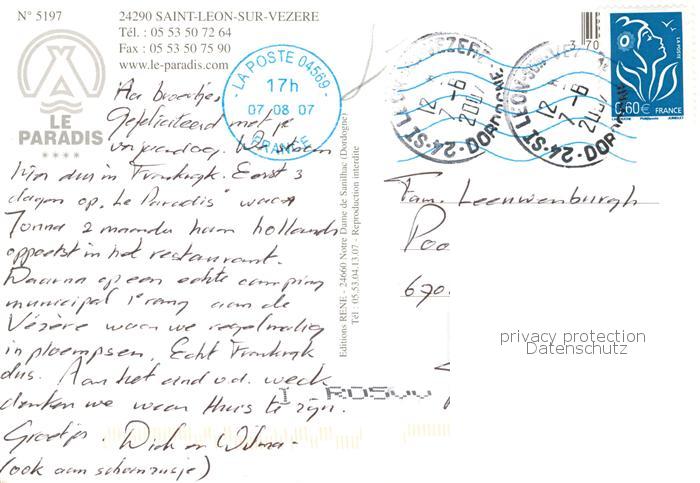 N° 5197
24290 SAINT-LEON-SUR-VEZERE
Tél. : 05 53 50 72 64
Fax : 05 53 50 75 90
www.le-paradis.com
LE
PARADIS
LA POSTE 04569
17h
07 08 07
FRANCE
3 70
LA POSTE
0,60€ FRANCE
24-ST LEON
12
7 - 6
2007
DORDOGNE
24-ST LEON
12
7 - 6
2007
DORDOGNE
Editions RENE - 24660 Notre Dame de Sanilhac (Dordogne)
Tél : 05.53.04.13.07 - Reproduction interdite
Aa broertje,
Gefeliciteerd met je
verjaardag. We
hier dus in Frankrijk. Eerst 3
dagen op "Le Paradis" waar
2 maanden haar hollands
oppoetst in het restaurant.
Daarna op een echte camping
municipal 1e rang aan de
Vézère waar we regelmatig
in ploempsen. Echt Frankrijk
dus. Aan het eind v.d. week
denken we weer thuis te zijn.
Groetjes. Dick en Wilma
(ook aan schoonzusje)
Fam. Leeuwenburgh
Poo
670
privacy protection
Datenschutz